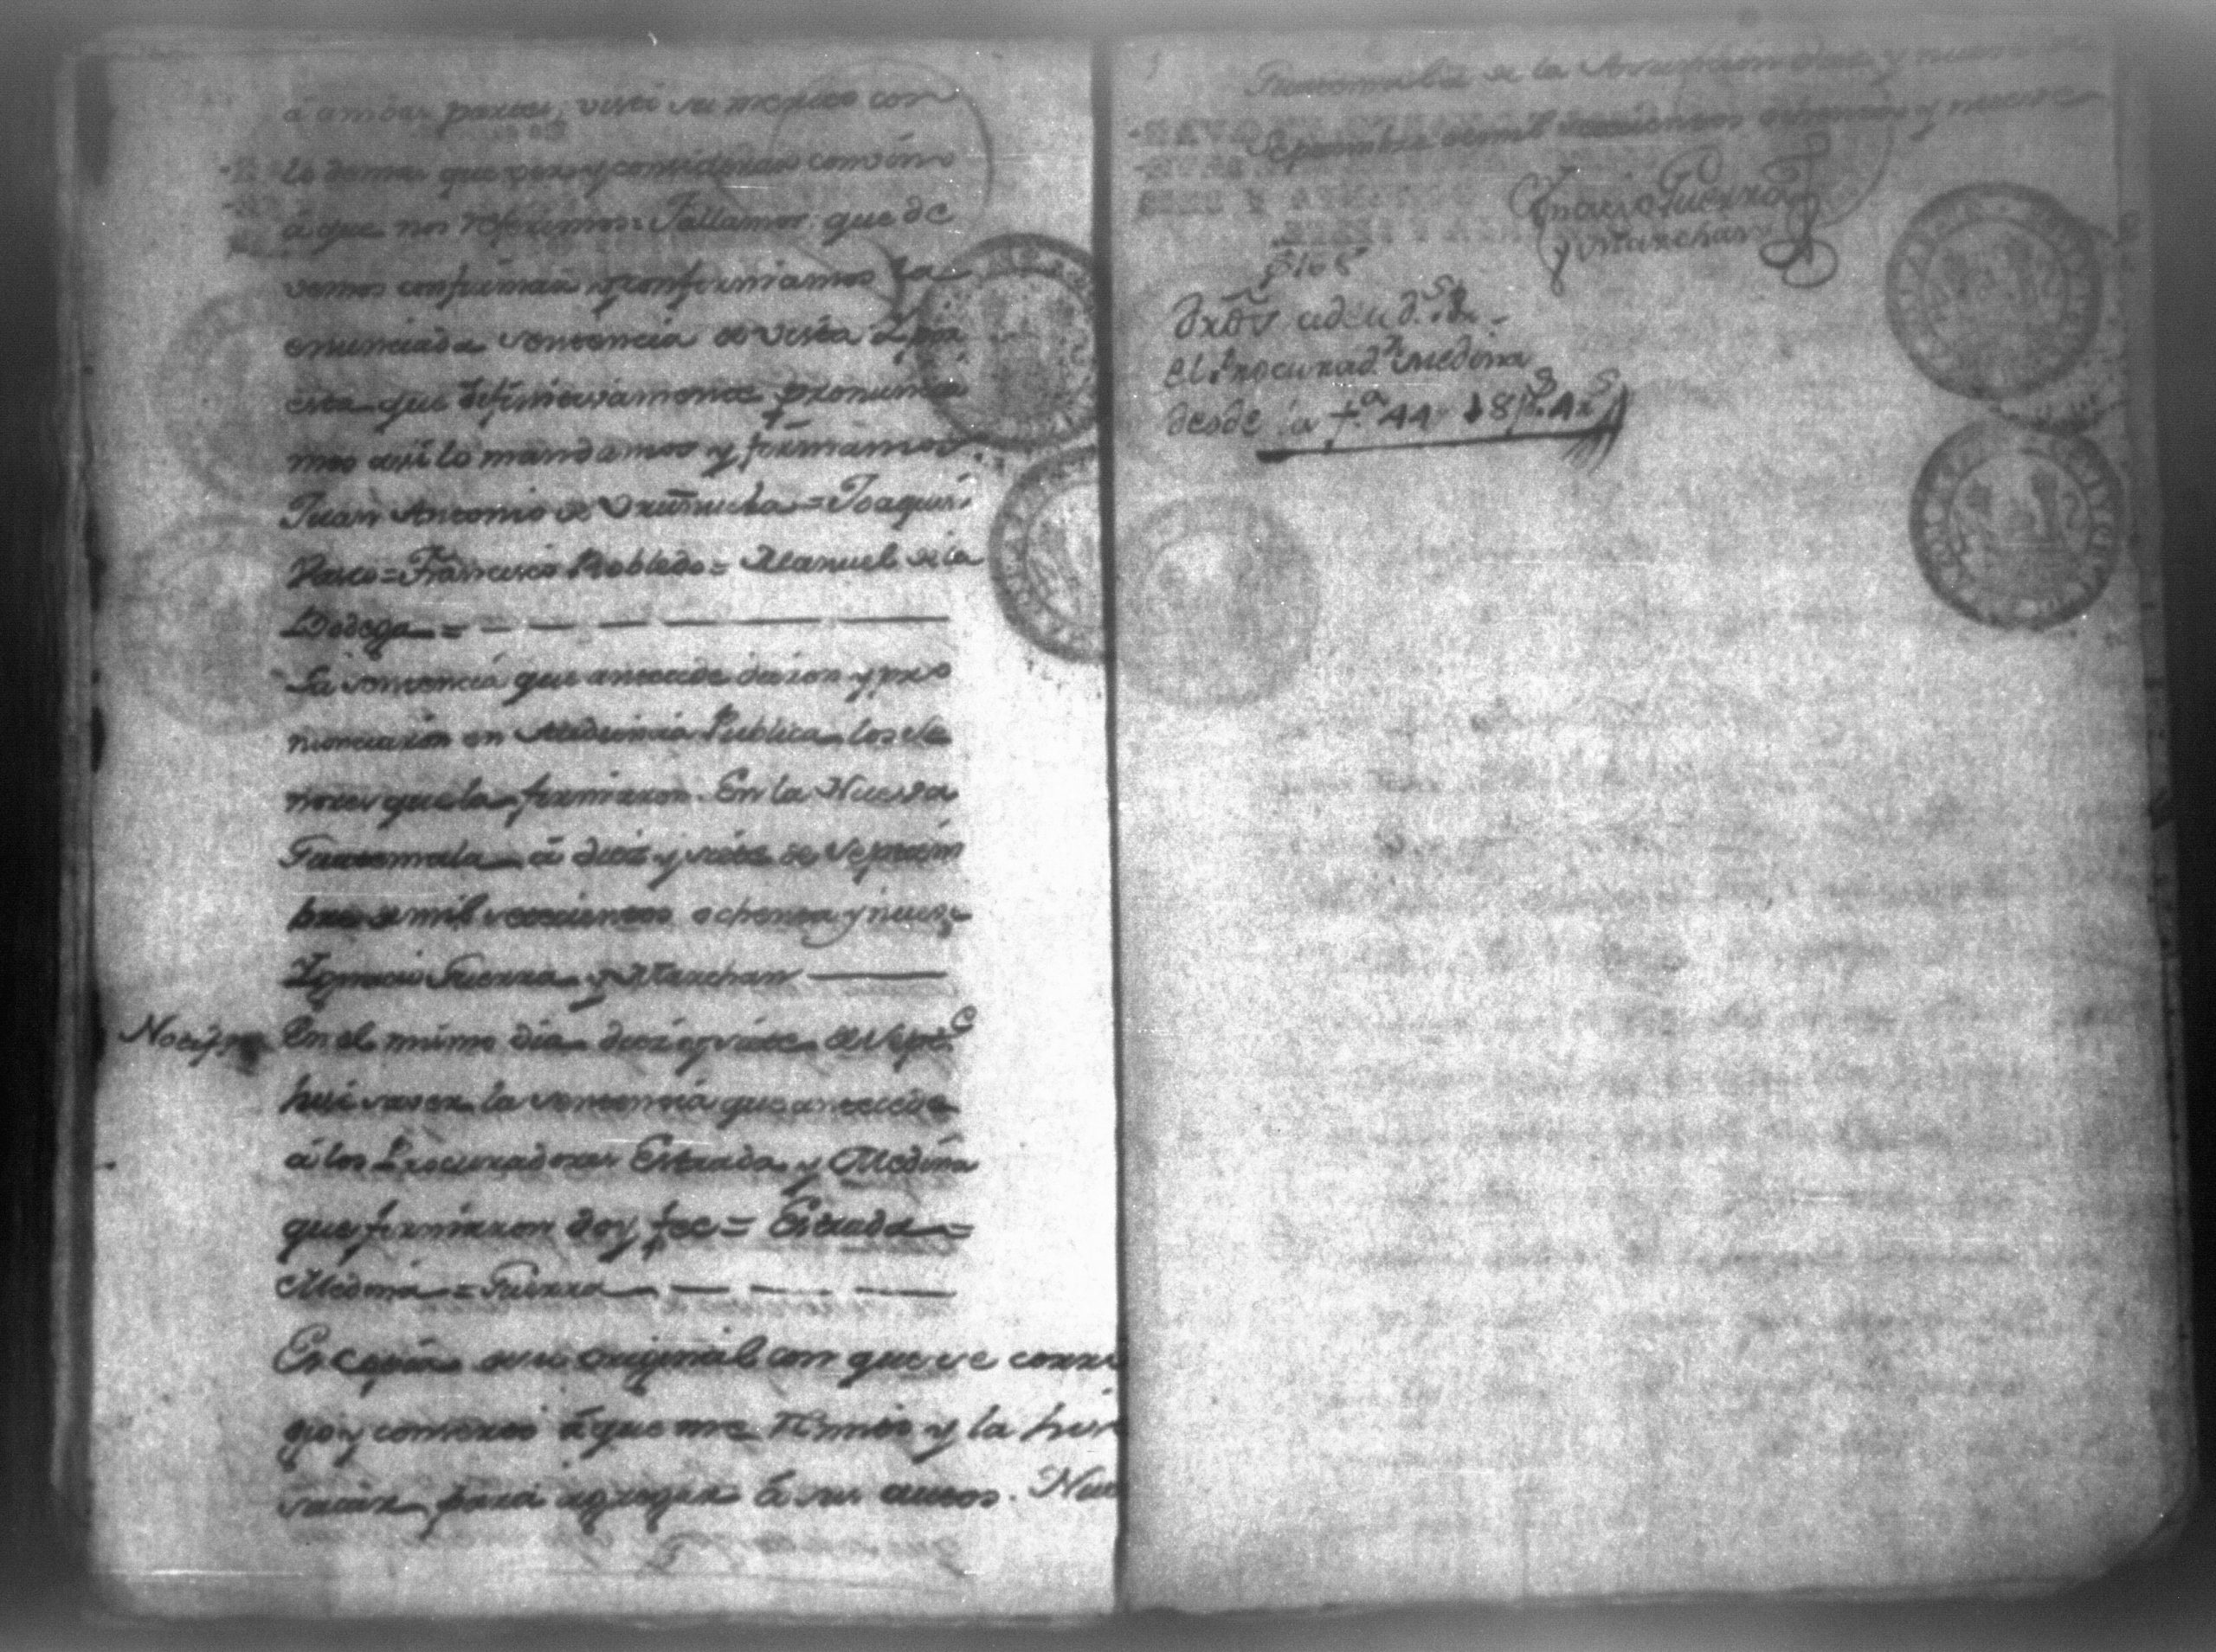 á ambas partes; visto su merito con
lo demas que ver y considerar convino
á que nos referimos: Fallamos que de
vemos confirmar y confirmamos la
enunciada sentencia de vista y por
esta que difinitivamente pronuncia
mos asi lo mandamos y firmamos.
Juan Antonio de Uruñuela = Joaquin
Vasco = Francisco Robledo = Manuel de la
Bodega =
La sentencia que antecede dieron y pro
nunciaron en Audiencia Publica los Se
nores que la firmaron. En la Nueva
Guatemala á diez y siete de Septiem
bre de mil setecientos ochenta y nueve
Ygnacio Guerra y Marchan
Notif.on En el mismo dia diez y siete de Sept.e
hice saver la sentencia que antecede
á los Procuradores Estrada y Medina
que firmaron doy fee = Estrada =
Medina = Guerra
Es copia de su original con que se corri
gio y concertó á que me remito y la hice
sacar para agregar á sus autos. Nue
Guatemala de la Assumpcion diez y nueve de
Septiembre de mil setecientos ochenta y nueve
Ignacio Guerra
y Marchan
el Procurad.r Medina
desde la f.a 44